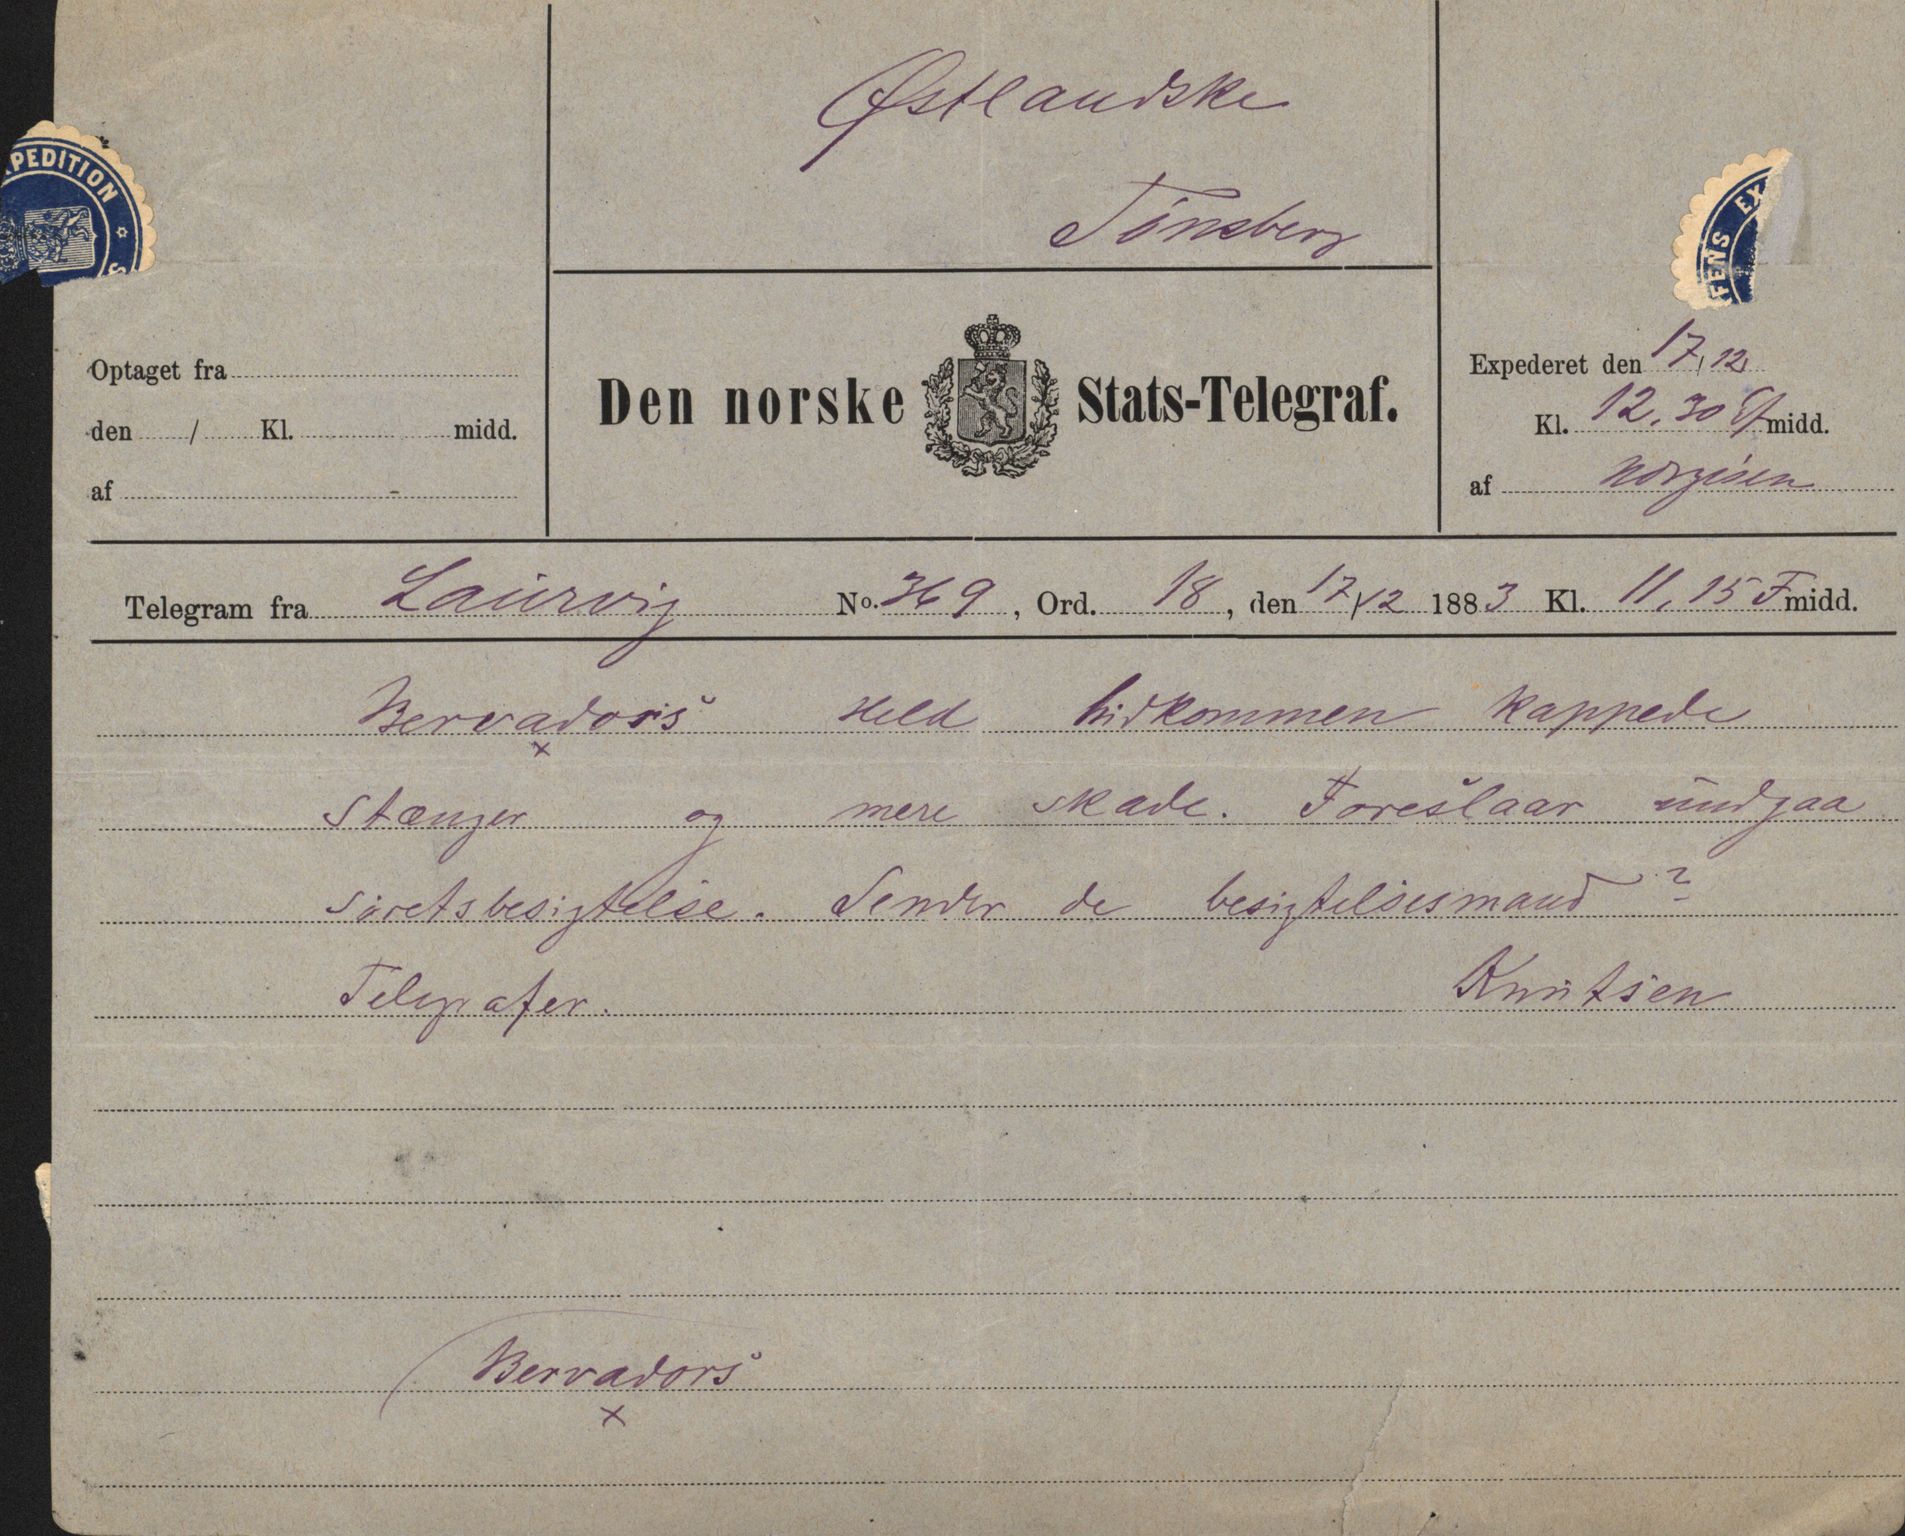 Østlandske
Tönsberg
PEDITION
S
FENS EX
Optaget fra
den / Kl. midd.
af
Den norske Stats-Telegraf.
Expederet den 17/12
Kl. 12,30 Ef midd.
af
Telegram fra Laurvig No. 369, Ord. 18, den 17/12 1883 Kl. 11,15 F midd.
Bervadors Held hidkommen kappede
stænger og mere skade. Foreslaar undgaa
söretsbesigtelse. Sender de besigtelsesmand?
Telegrafer. Knutsen
Bervadors
x